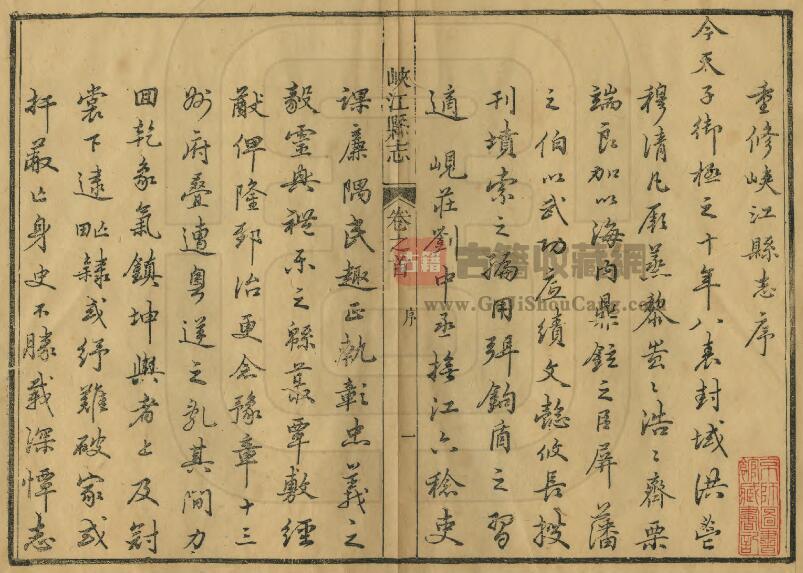 重修峽江縣志序
今天子御極之十年八表封域洪荒
穆清凡厥蒸黎蚩〻浩〻齊栗
端良加以海內鼎鉉之臣屏藩
之伯以武功庶績文懿攸長搜
刊墳索之編用弭鉤之習
適峴莊劉中丞撫江六稔吏
峽江縣志
卷之首
序
一
課廉隅民趣正執彰忠義之
毅靈興禮樂之緜蕞覃敷經
猷俾隆郅治更念豫章十三
州府疊遭粵逆之亂其間力
回乾象氣鎮坤輿者上及紳
裳下逮隸或紓難破家或
扞蔽亡身史不勝載深憚志
古籍收藏網
www.GuJiShouCang.com